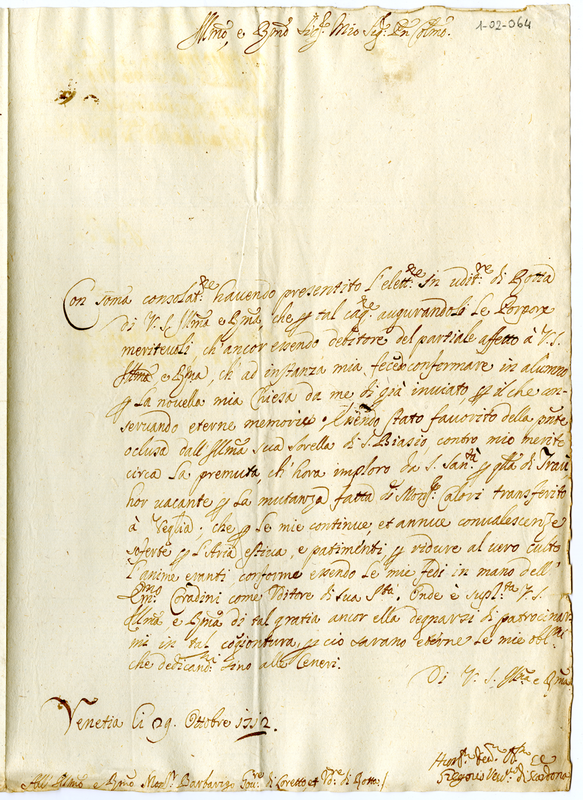 1-02-064
Illmo, e Rmo Sigr: Mio Sigr: Pn Colmo:
Con soma consolat:ne havendo presentito l'elett:ne in udit:re di Rotta
di V: S: Illma e Rma, che per tal cag:ne augurandoli le Porpore
meritevoli, ch'ancor essendo debitore del partiale affetto à V: S:
Illma, e Rma, ch'ad instanza mia fece conformare in alunno
per la novella mia Chiesa da me di già inviato per il che con-
servando eterne memorie. Essendo stato favorito della pnte
oclusa dall'Illma sua sorella di S: Biasio, contro mio merito
circa la premuta, ch'hora imploro da S. Santà per qlla di Traù
hor vacante per la mutanza fatta di Monsr Calori transferito
à Veglia. che per le mie continue, et annue convalescenze
soferte per l'Aria estica, e patimenti per ridure al vero culto
l'anime eranti, conforme essendo le mie fedi in mano dell'
Emmo Coradini come Uditore di sua Stà. Onde è supl:ta V: S:
Illma e Rma di tal gratia ancor ella degnarsi di patrocinar
mi in tal congiontura, per cio sarano eterne le mie obl:ni
che dedicand: sino alle Ceneri.
Di V: S: Illma e Rma
Venetia li 29. Ottobre 1712.
Gregorio Vesc: di Scardona
All'Illmo e Rmo Monsr Barbarigo Gov:re di Loretto et Ud:re di Rotta/